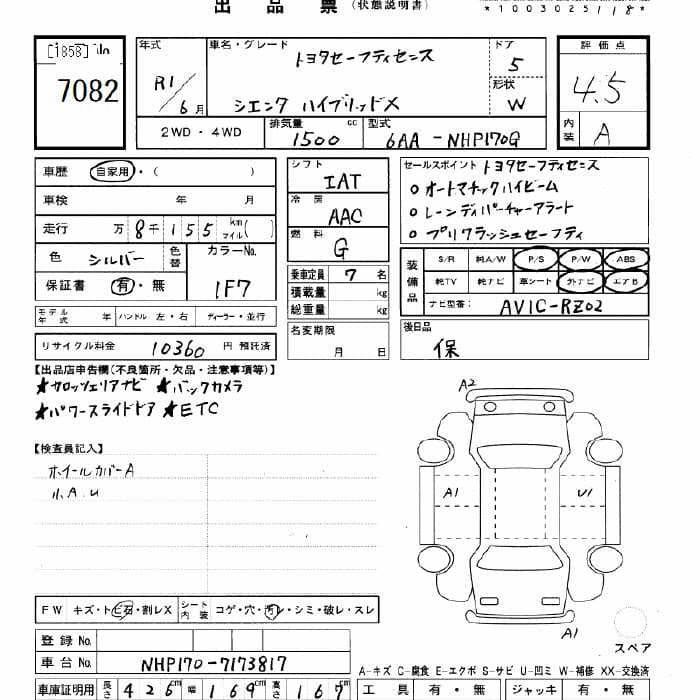 出品票(状態説明書)
*1003025118*
[1858]
7082
年式 車名・グレード トヨタセーフティセンス ドア 5 評価点
R1/6月 シエンタ ハイブリッドX 形状 W 4.5
2WD・4WD 排気量 1500 cc 型式 6AA-NHP170G 内装 A
車歴 自家用・( )
車検 年 月
走行 万 8千155 km マイル( )
色 シルバー 色替 カラーNo. 1F7
保証書 有・無
モデル年式 年 ハンドル 左・右 ディーラー・並行
リサイクル料金 10360 円 預託済
シフト IAT
冷房 AAC
燃料 G
乗車定員 7 名
積載量 kg
総重量 kg
名変期限 月 日
セールスポイント トヨタセーフティセンス
○オートマチックハイビーム
○レーンディパーチャーアラート
○プリクラッシュセーフティ
装備品 S/R 純A/W P/S P/W ABS
純TV 純ナビ 革シート 外ナビ エアB
ナビ型番: AVIC-RZ02
後日品
保
【出品店申告欄(不良箇所・欠品・注意事項等)】
★カロッツェリアナビ ★バックカメラ
★パワースライドドア ★ETC
【検査員記入】
ホイールカバーA
小A.U
A2
A1 U1
A1
スペア
FW キズ・トビ石・割レX シート内装 コゲ・穴・汚レ・シミ・破レ・スレ
登録No.
車台No. NHP170-7173817
A-キズ C-腐食 E-エクボ S-サビ U-凹ミ W-補修 XX-交換済
車庫証明用 長さ 426cm 幅 169cm 高さ 167cm 工具 有・無 ジャッキ 有・無